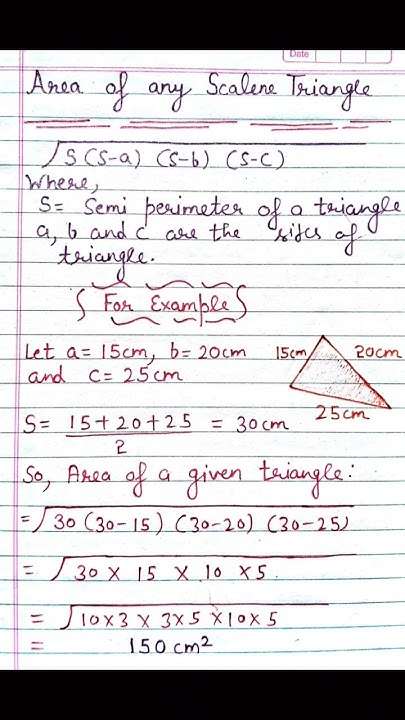 Date
Area of any Scalene Triangle
√S(S-a) (S-b) (S-C)
Where,
S= Semi perimeter of a triangle
a, b and c are the sides of
triangle.
For Example
Let a= 15cm, b= 20cm
and c= 25cm
15cm 20cm
25cm
S= 15+20+25/2 = 30cm
So, Area of a given triangle:
=√30(30-15) (30-20) (30-25)
= √30 X 15 X 10 X 5
= √10×3 × 3×5 ×10×5
= 150 cm²